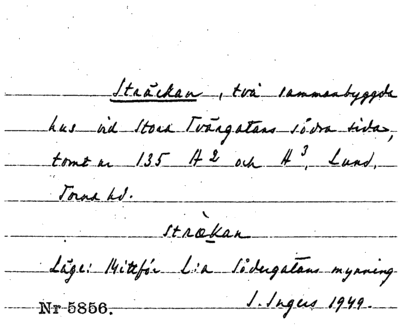 Sträckan, två sammanbyggda
hus vid Stora Tvärgatans södra sida,
tomt nr 135 H2 och H3, Lund,
Torna hd.
stràkan
Läge: Mittför L:a Södergatans mynning
Nr 5856. I. Ingers 1949.